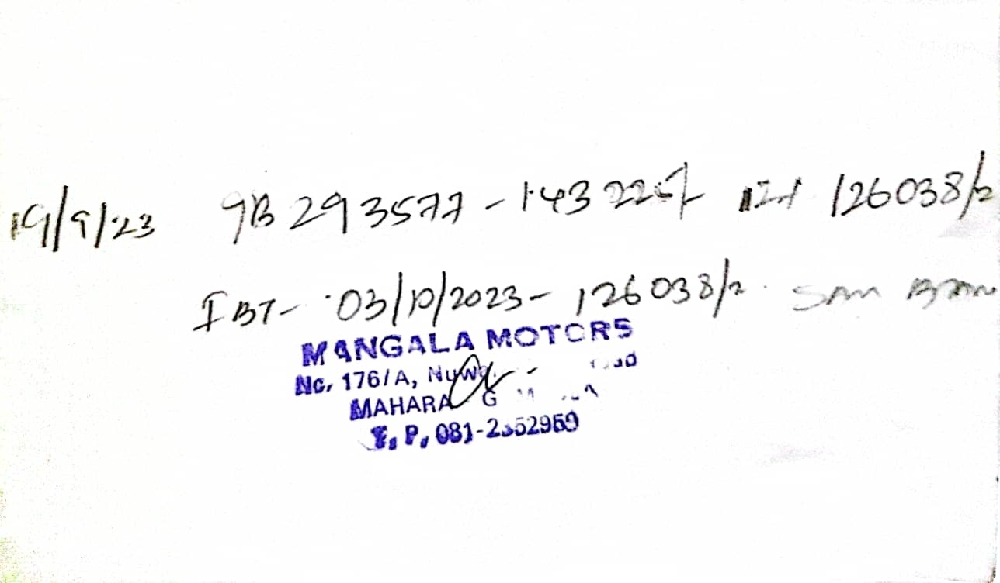 19/9/23 9B293577 - 143225/- 126038/2
IBT - 03/10/2023 - 126038/2. Sam
MANGALA MOTORS
No. 176/A,
T. P. 081-2352969